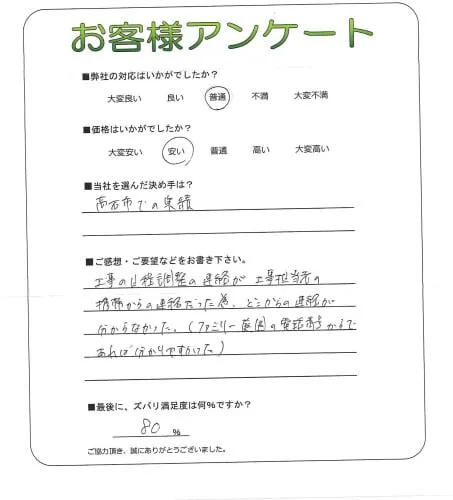 お客様アンケート
■弊社の対応はいかがでしたか?
大変良い 良い 普通 不満 大変不満
■価格はいかがでしたか?
大変安い 安い 普通 高い 大変高い
■当社を選んだ決め手は?
高石市での実績
■ご感想・ご要望などをお書き下さい。
工事の日程調整の連絡が工事担当者の
携帯からの連絡だった為、どこからの連絡か
分からなかった。(ファミリー庭園の電話番号からで
あれば分かりやすかった)
■最後に、ズバリ満足度は何%ですか?
80 %
ご協力頂き、誠にありがとうございました。